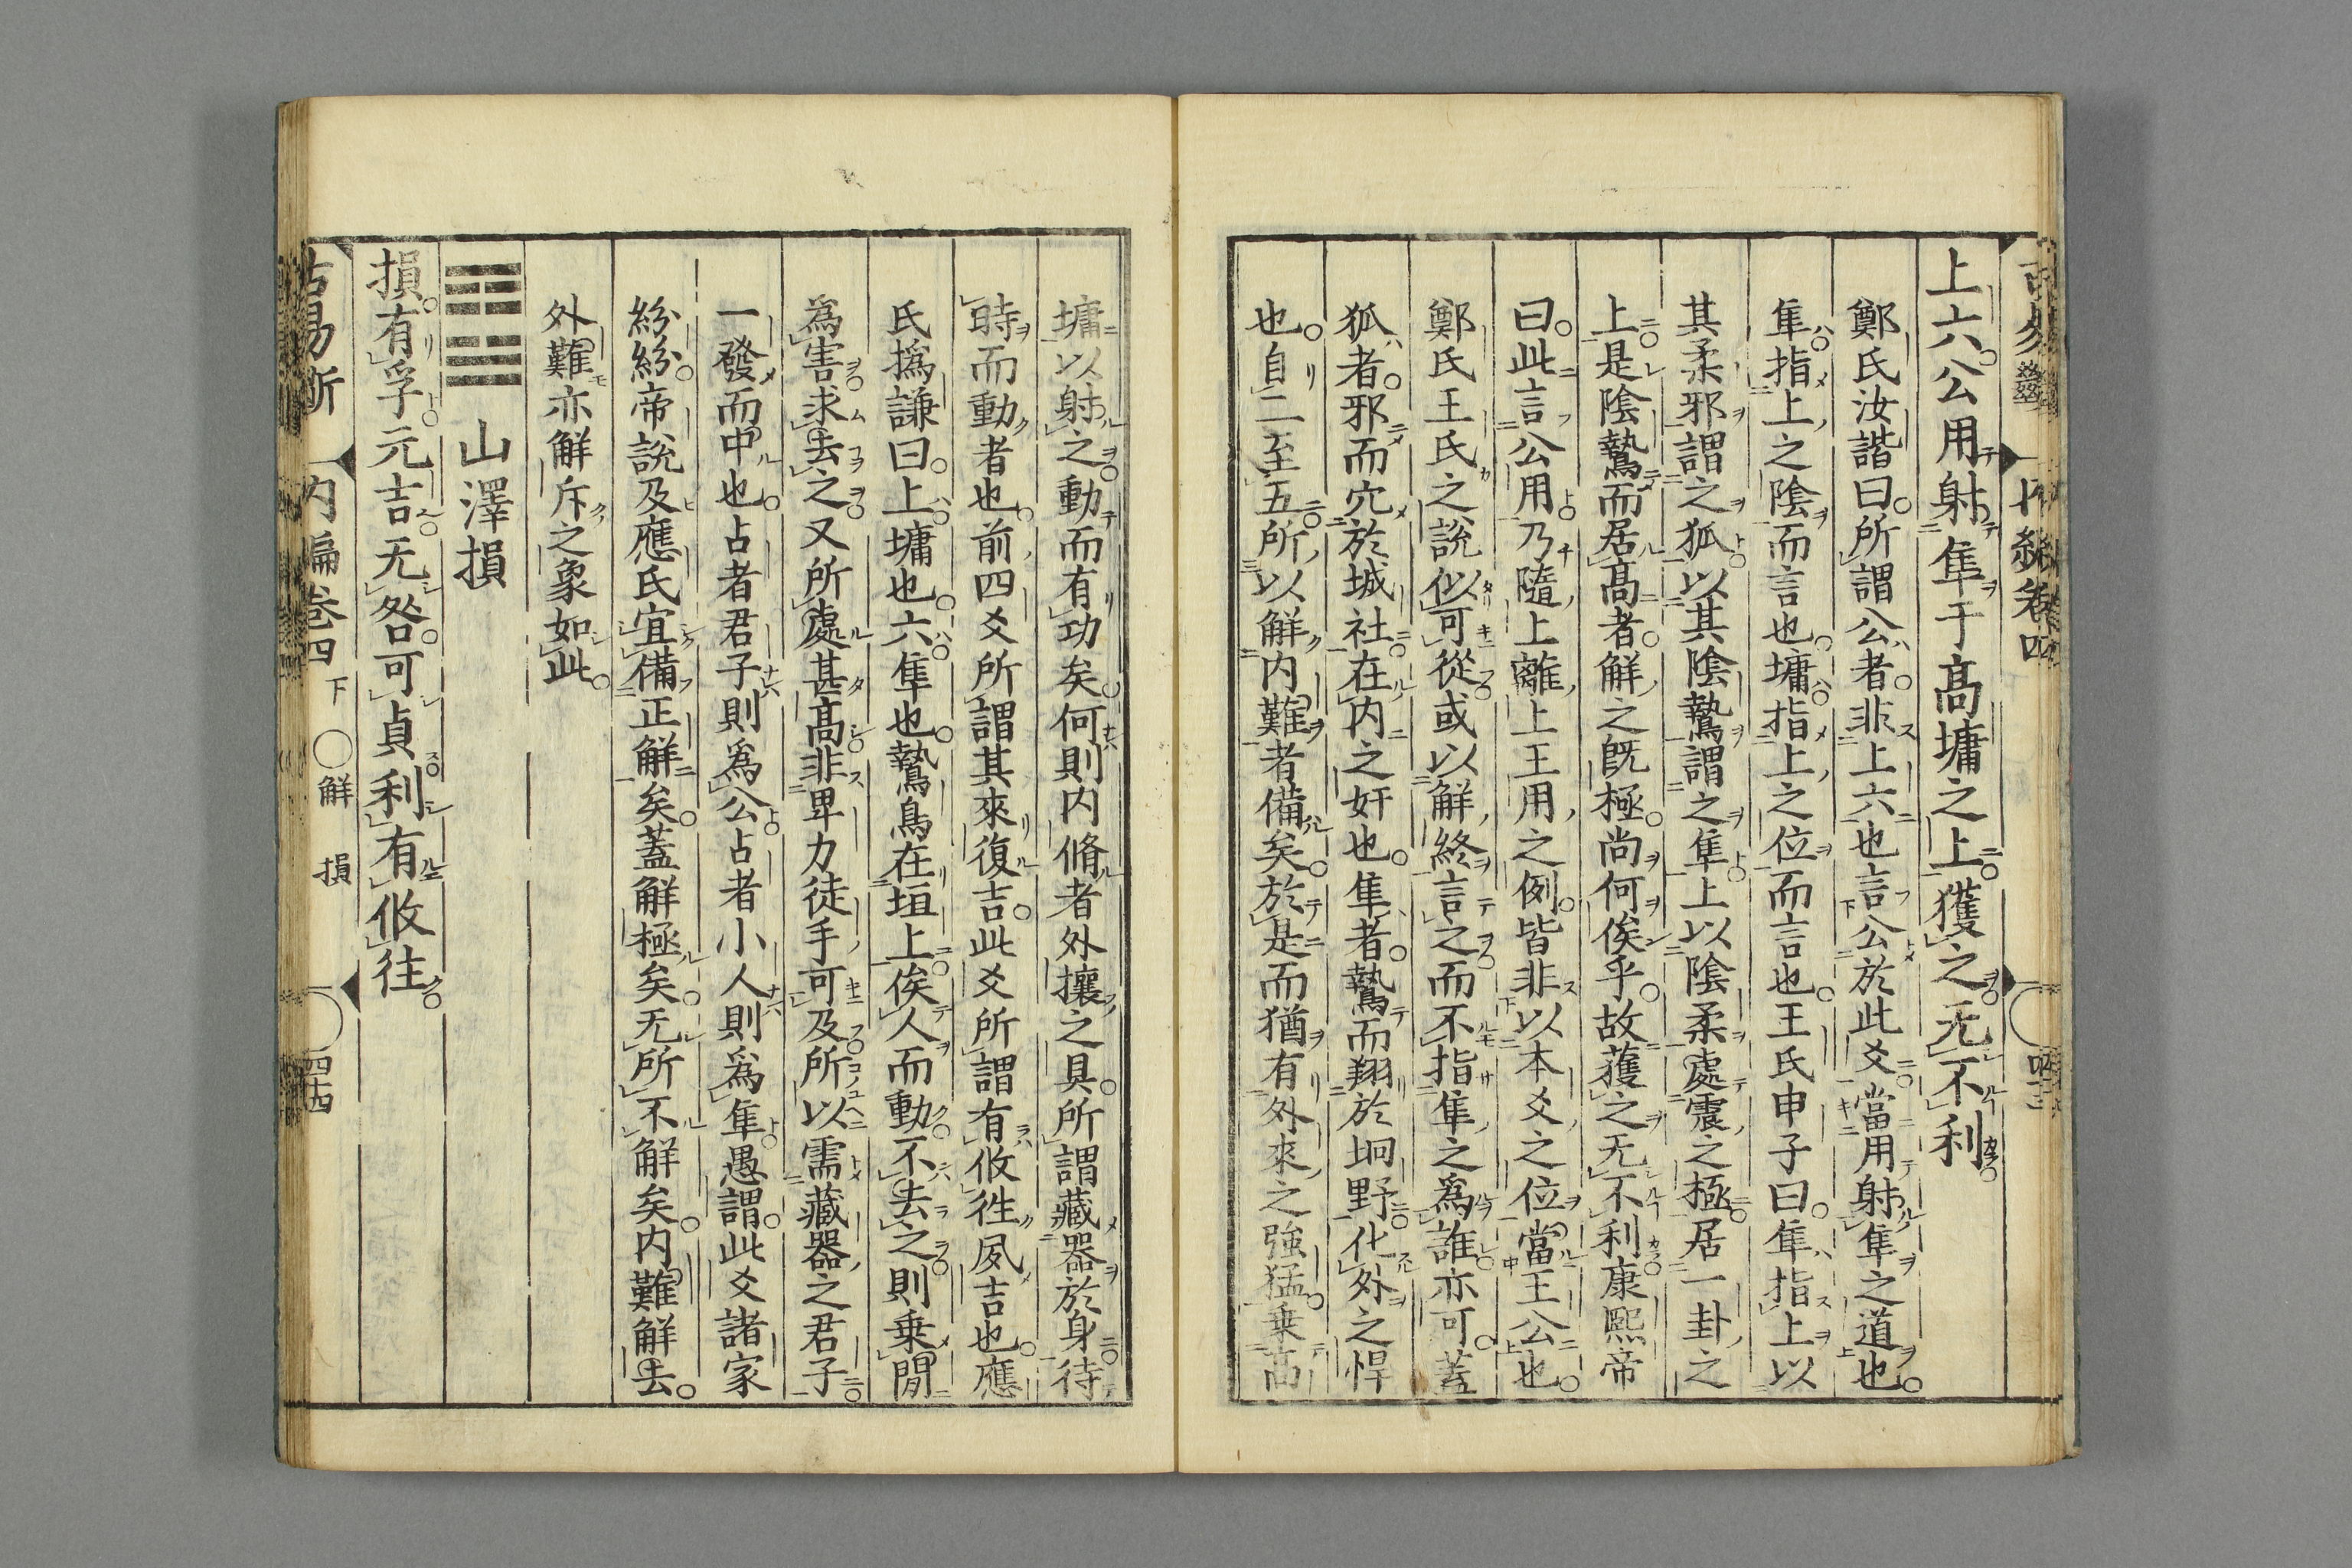 上六公用射隼于高墉之上獲之无不利
鄭氏汝諧曰所謂公者非上六也言公於此爻當用射隼之道也
隼指上之陰而言也墉指上之位而言也王氏申子曰隼指上以
其柔邪謂之狐以其陰鷙謂之隼上以陰柔處震之極居一卦之
上是陰鷙而居高者解之既極尚何俟乎故獲之无不利康熙帝
曰此言公用乃隨上離上王用之例皆非以本爻之位當王公也
鄭氏王氏之說似可從或以解終言之而不指隼之為誰亦可蓋
狐者邪而穴於城社在内之奸也隼者鷙而翔於坰野化外之悍
也自二至五所以解内難者備矣於是而猶有外來之強猛乗高
墉以射之動而有功矣何則内脩者外攘之具所謂藏器於身待
時而動者也前四爻所謂其來復吉此爻所謂有攸徃夙吉也應
氏撝謙曰上墉也六隼也鷙鳥在垣上俟人而動不去之則乗閒
為害求去之又所處甚高非畀力徒手可及所以需藏器之君子
一發而中也占者君子則爲公占者小人則爲隼愚謂此爻諸家
紛紛帝說及應氏宜備正解矣蓋解極矣无所不解矣内難解去
外難亦解斥之象如此
山澤損
損有孚元吉无咎可貞利有攸往
古易斷 内編卷四 下 解 損 四十四